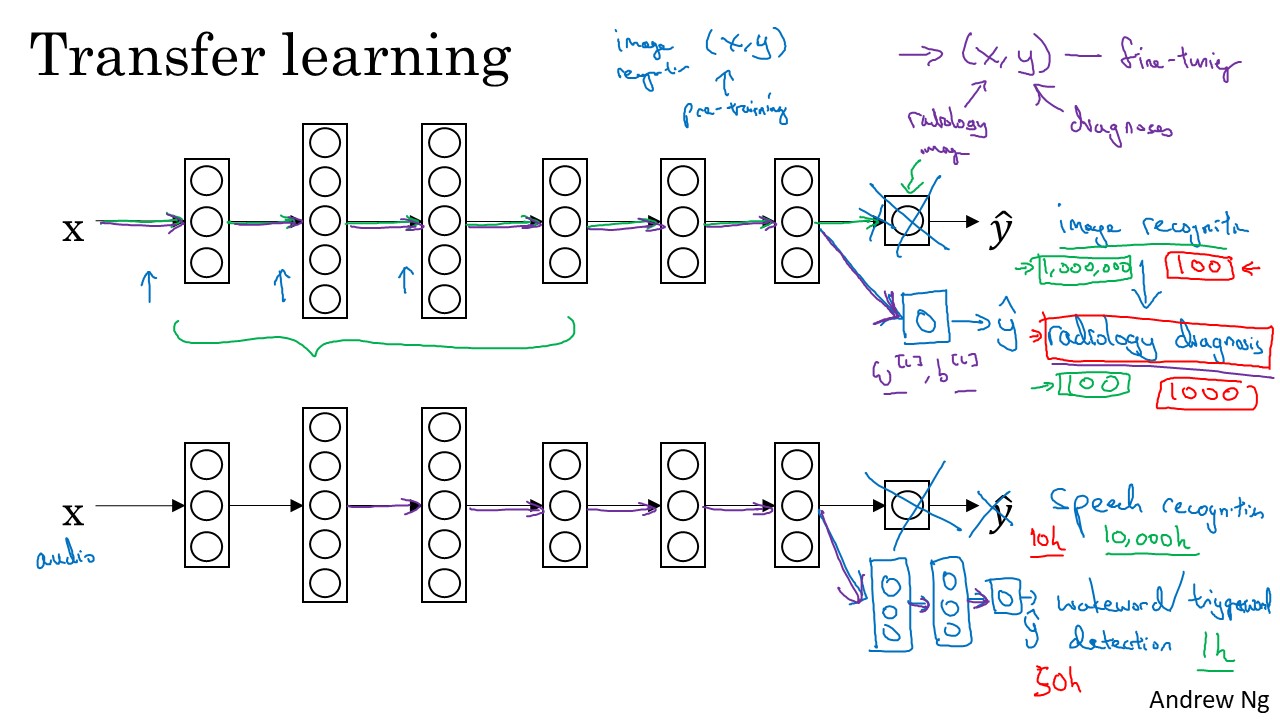 Transfer learning
image (x,y)
pre-training
→ (x,y) — fine-tuning
radiology
image
diagnoses
x
ŷ
image recognition
→ 1,000,000
100 ←
ŷ
→ radiology diagnosis
w[L], b[L]
→ 100
1000
x
audio
ŷ
speech recognition
10h
10,000h
ŷ
wakeword/triggerword
detection
1h
50h
Andrew Ng